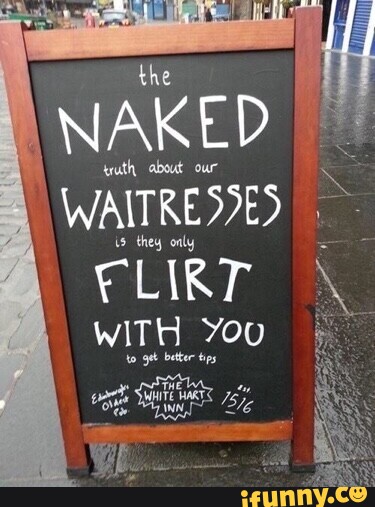 the
NAKED
truth about our
WAITRESSES
is they only
FLIRT
WITH YOU
to get better tips
Edinburgh's
Oldest
Pub.
THE
WHITE HART
INN
Est.
1516
ifunny.co